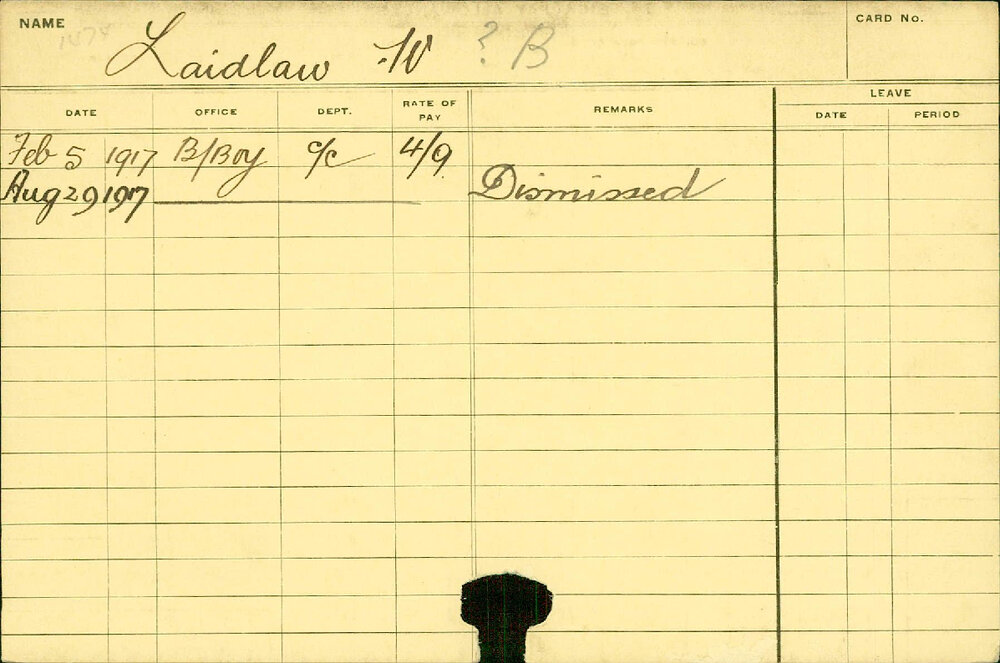 NAME Laidlaw W ? B CARD No.
1474
LEAVE
DATE OFFICE DEPT. RATE OF PAY REMARKS DATE PERIOD
Feb 5 1917 B/Boy c/c 4/9
Aug 29 1917 Dismissed